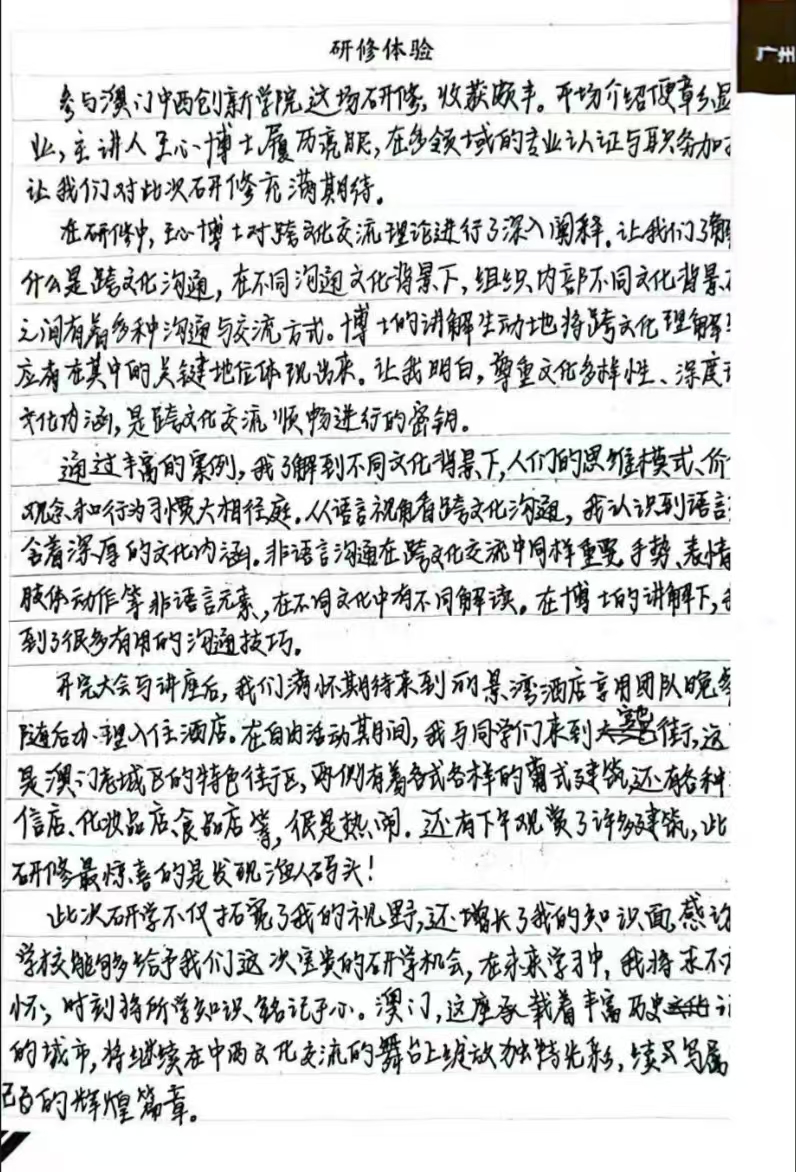 研修体验
广州
参与澳门中西创新学院这场研修，收获颇丰。开场介绍便尽显
业，主讲人王心博士履历亮眼，在多领域的专业认证与职务加
让我们对此次研修充满期待。
在研修中，王心博士对跨文化交流理论进行了深入阐释。让我们了解
什么是跨文化沟通，在不同沟通文化背景下，组织内部不同文化背景
之间有着多种沟通与交流方式。博士的讲解生动地将跨文化理解
应者在其中的关键地位体现出来。让我明白，尊重文化多样性、深度
文化内涵，是跨文化交流顺畅进行的密钥。
通过丰富的案例，我了解到不同文化背景下，人们的思维模式、价
观念和行为习惯大相径庭。从语言视角看跨文化沟通，我认识到语言
含着深厚的文化内涵。非语言沟通在跨文化交流中同样重要，手势、表情
肢体动作等非语言元素，在不同文化中有不同解读。在博士的讲解下，
到了很多有用的沟通技巧。
开完大会与讲座后，我们满怀期待来到丽景湾酒店享用团队晚
随后办理入住酒店。在自由活动期间，我与同学们来到官也街，这
是澳门老城区的特色街区，两侧有着各式各样的葡式建筑，还有各种
信店、化妆品店、食品店等，很是热闹。还有下午观赏了许多建筑，此
研修最惊喜的是发现渔人码头！
此次研学不仅拓宽了我的视野，还增长了我的知识面，感
学校能够给予我们这次宝贵的研学机会，在未来学习中，我将求不
怀，时刻将所学知识铭记于心。澳门，这座承载着丰富历史
的城市，将继续在中西文化交流的舞台上绽放独特光彩，续写属
己的辉煌篇章。